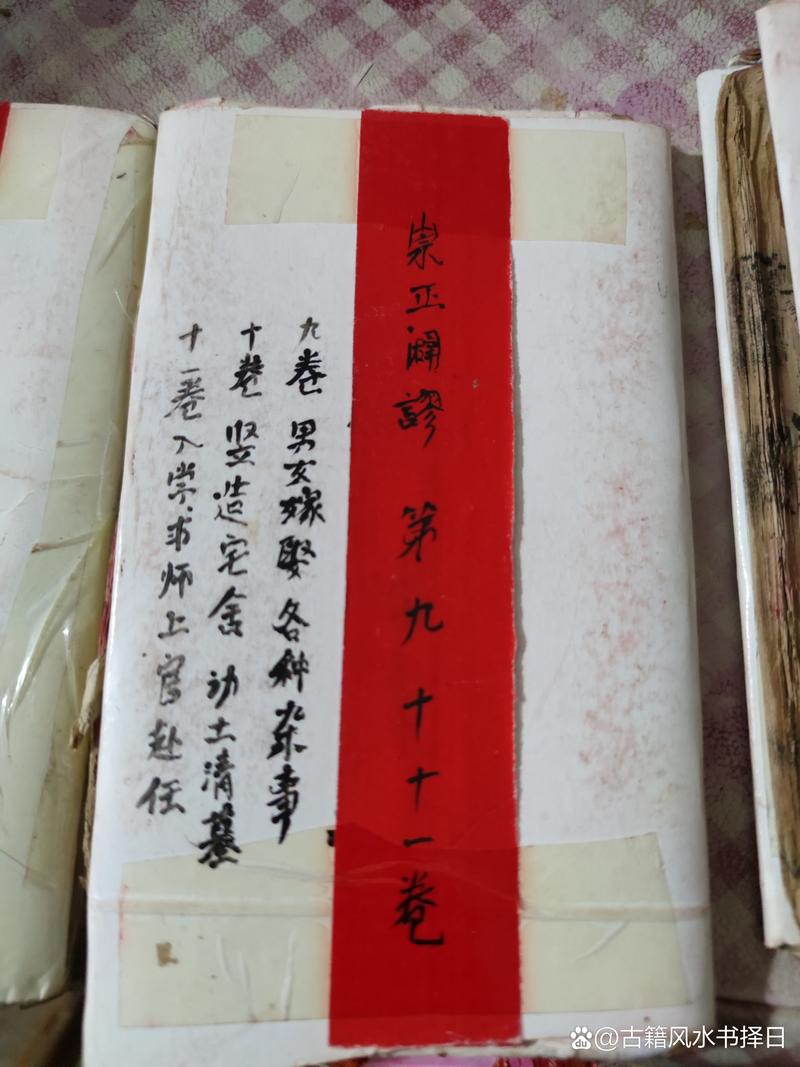 崇正闢謬 第九十十一卷
九卷 男女嫁娶各种杂事
十卷 竖造宅舍 动土清墓
十一卷入学求师上官赴任
@古籍风水书择日